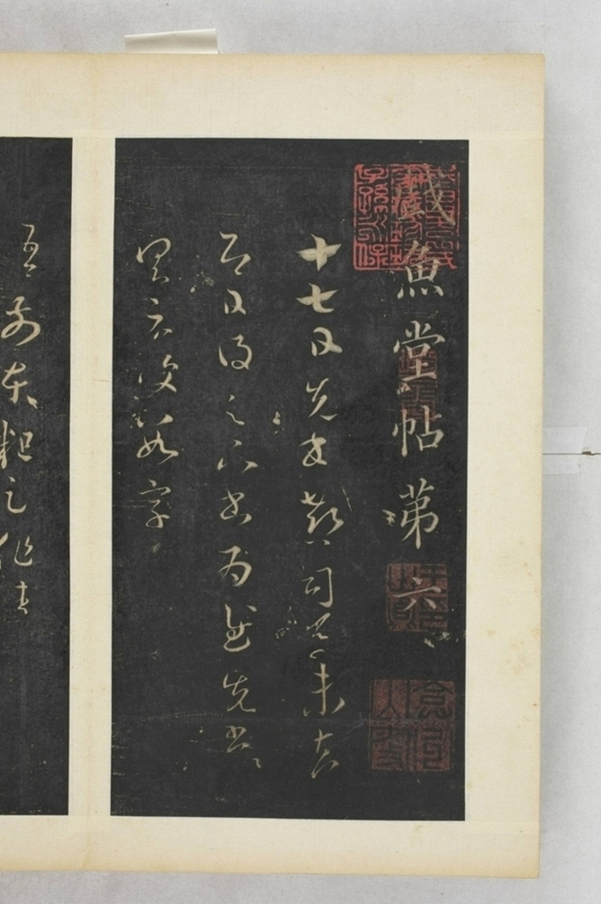 戲魚堂帖第六
十七日先書郗司馬未去
即日得足下書為慰先書
以具示復數字
吾前東粗足作佳
子孫永保